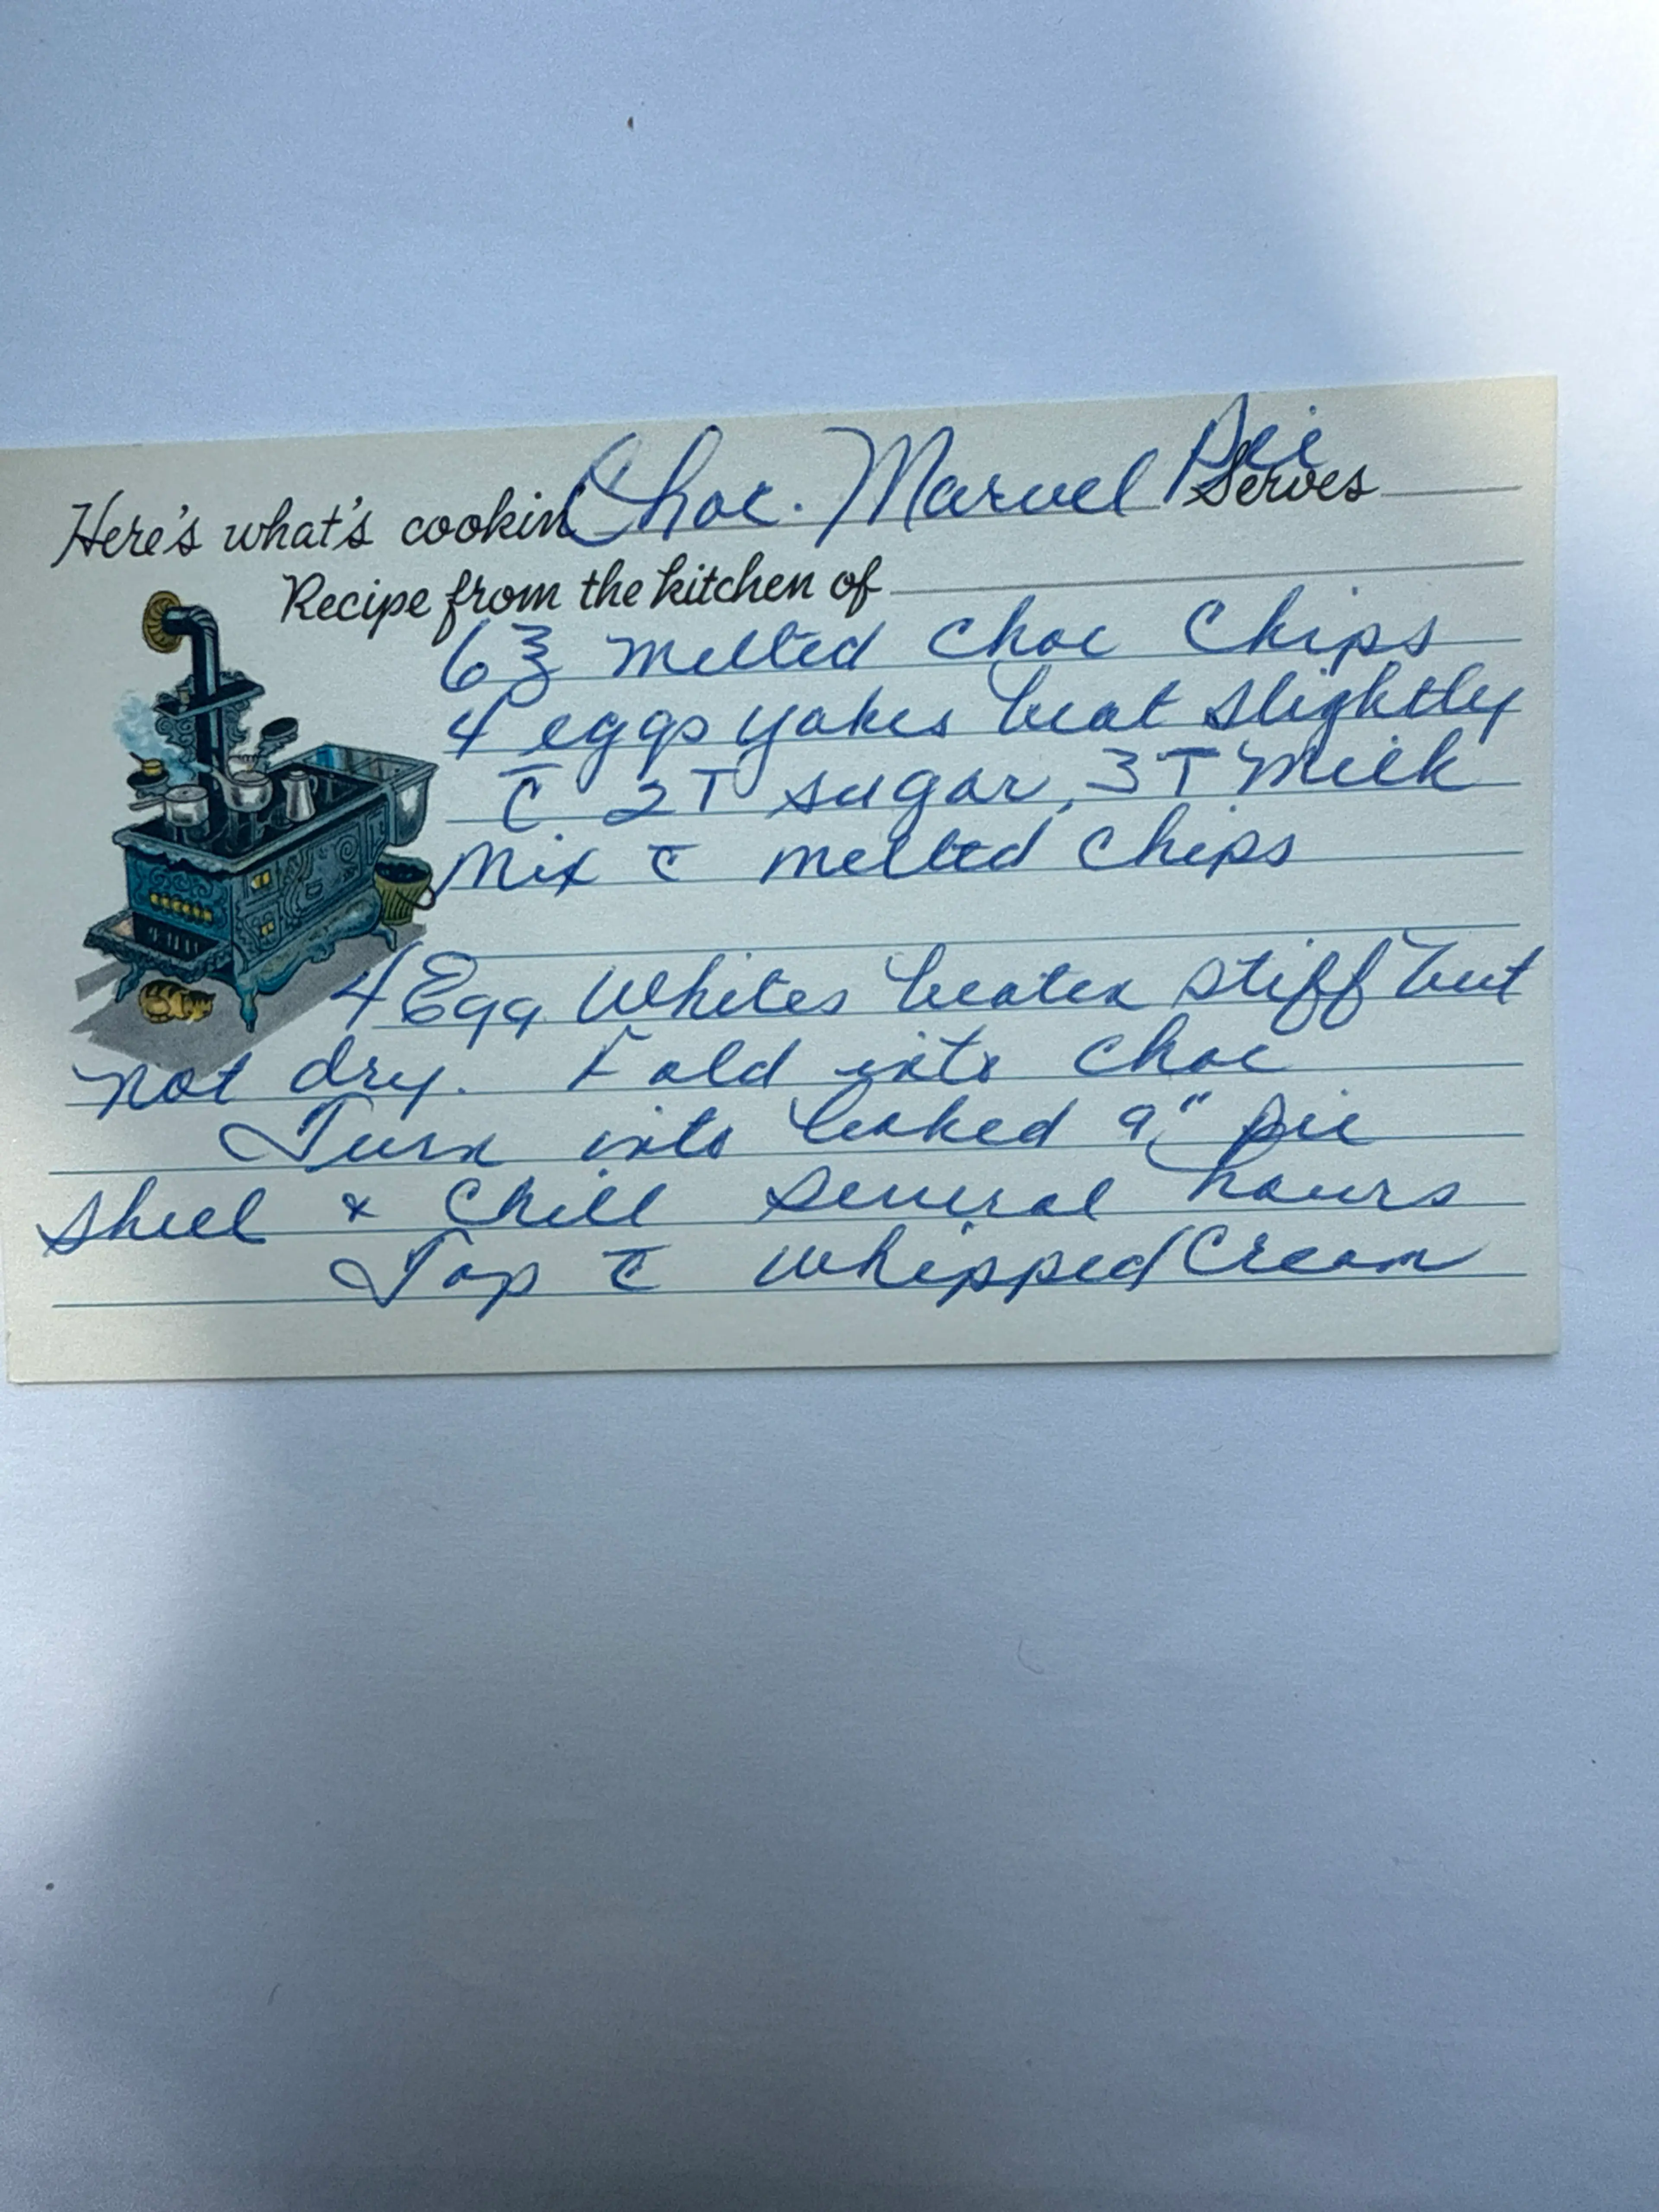 Here's what's cookin Choc. Marvel Pie Serves
Recipe from the kitchen of
6℥ melted choc chips
4 eggs yokes beat slightly
c̄ 2T sugar, 3T Milk
Mix c̄ melted chips
4 Egg Whites beaten stiff but
not dry. Fold into choc
Turn into baked 9" pie
shell & Chill several hours
Top c̄ whipped Cream